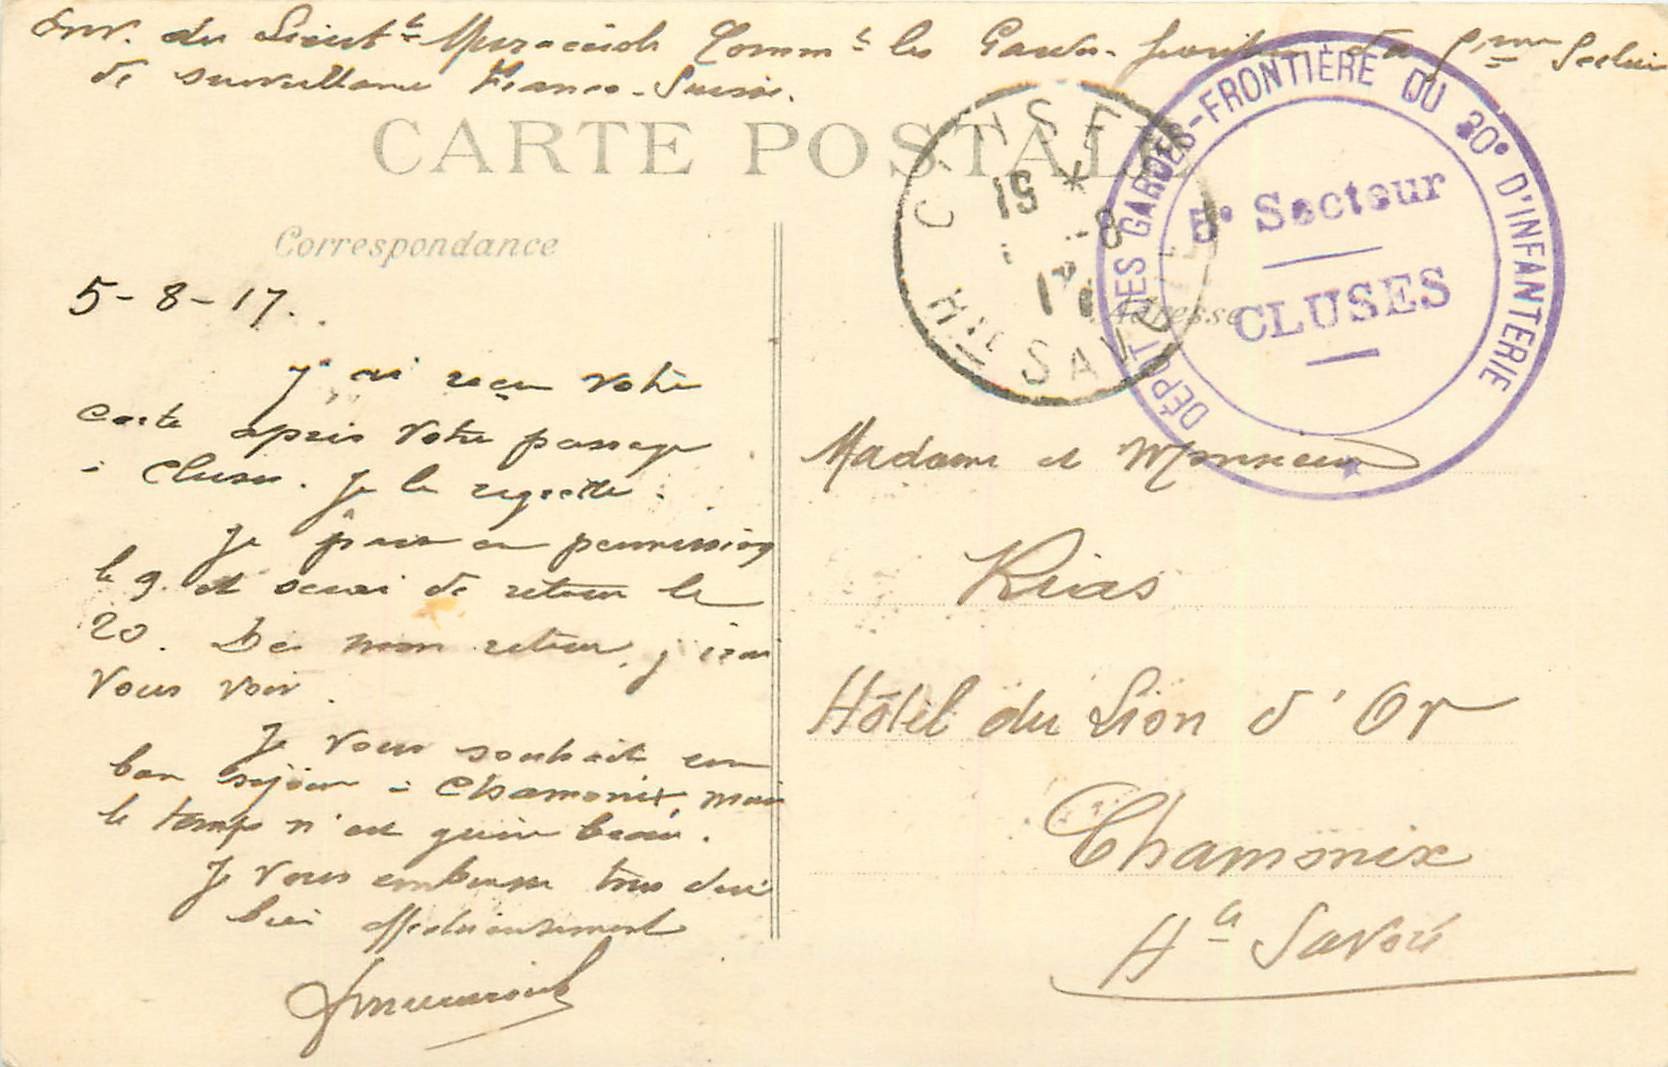 Env. du Lieut^t Commd^t les Gardes-frontière du 5^ème Secteur
de surveillance Franco-Suisse.
CARTE POSTALE
CLUSES
15 *
8
17
H^TE SAVOIE
DÉPÔT DES GARDES-FRONTIÈRE DU 30e D'INFANTERIE
5e Secteur
CLUSES
Correspondance
Adresse
5-8-17.
J'ai reçu votre
carte après votre passage
à Cluses. Je le regrette.
Je pars en permission
le 9. et serai de retour le
20. Dès mon retour, j'irai
vous voir.
Je vous souhaite un
bon séjour à Chamonix, mais
le temps n'est guère beau.
Je vous embrasse tous deux
bien affectueusement
Madame et Monsieur
Rias
Hôtel du Lion d'Or
Chamonix
H^te Savoie